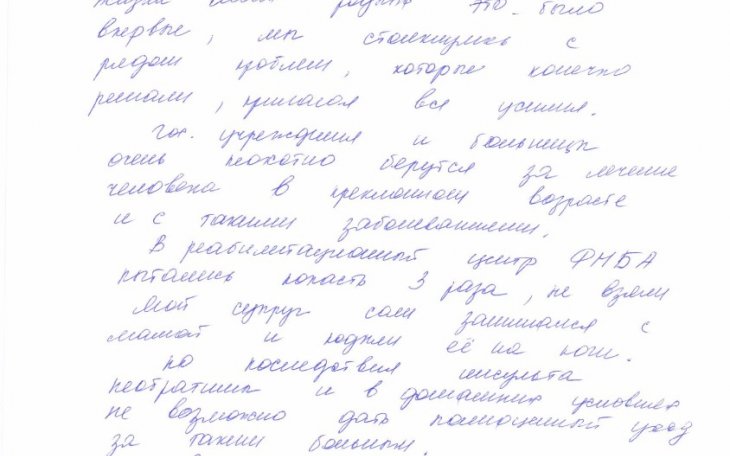 жизни нашей родни это было
впервые, мы столкнулись с
рядом проблем, которые конечно
решали, прилагая все усилия.
Гос. учреждения и больницы
очень неохотно берутся за лечение
человека в преклонном возрасте
и с такими заболеваниями.
В реабилитационный центр ФМБА
пытались попасть 3 раза, не взяли
Мой супруг сам занимался с
мамой и подняли её на ноги.
Но последствия инсульта
необратимы и в домашних условиях
не возможно дать полноценный уход
за таким больным.